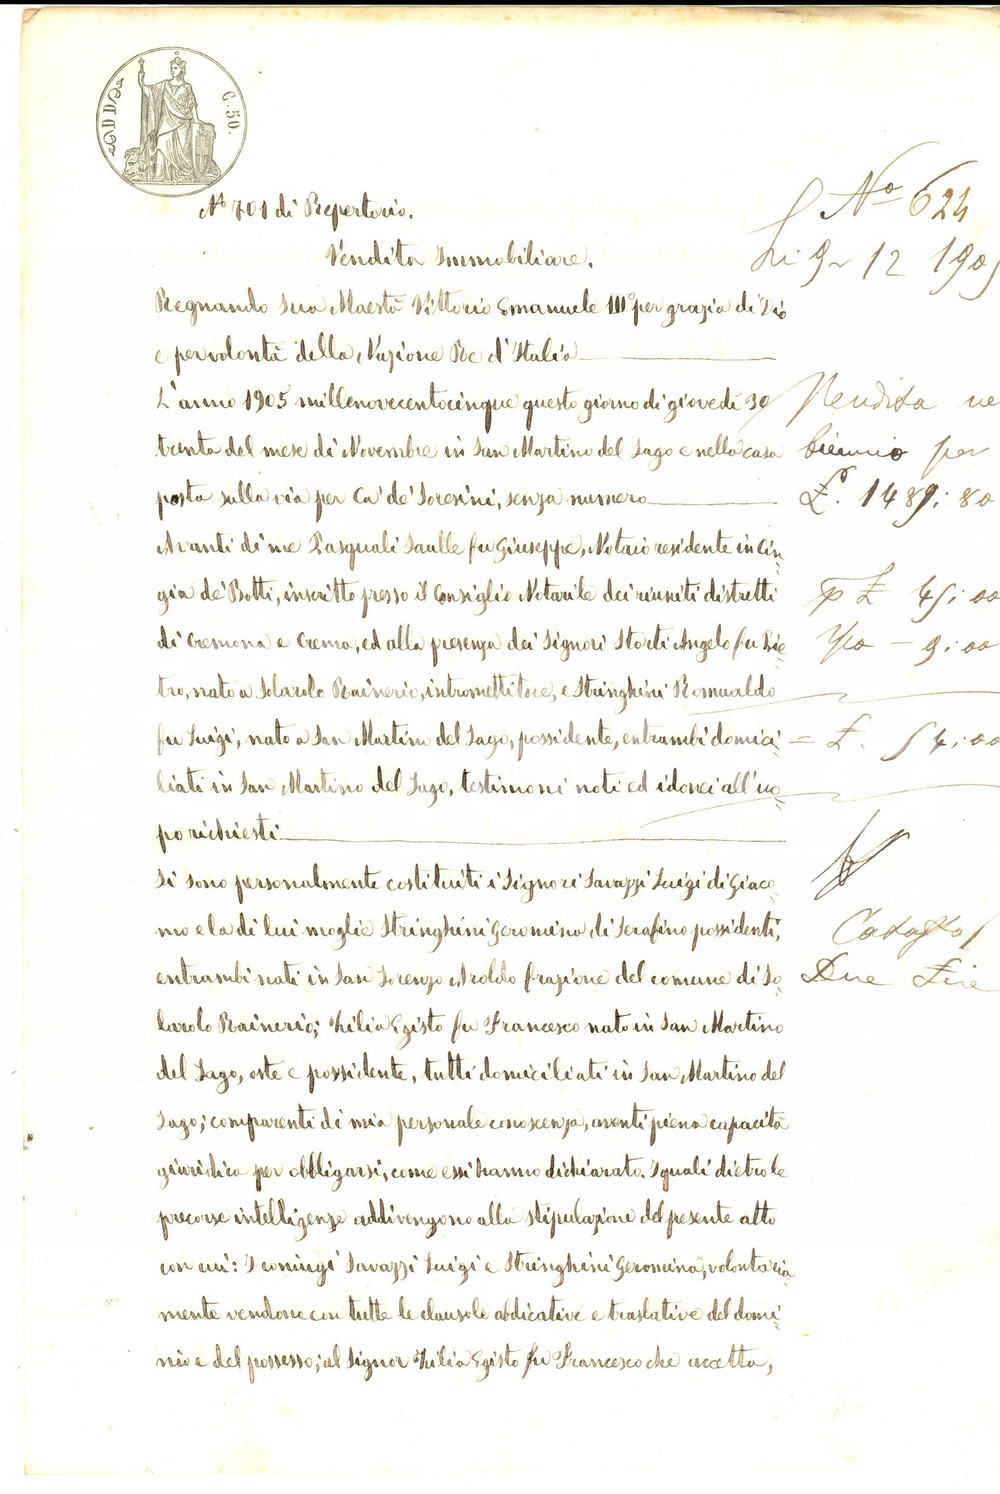 C. 50.
Nº 701 di Repertorio.
Vendita Immobiliare.
Regnando Sua Maestà Vittorio Emanuele IIIº per grazia di Dio
e per volontà della Nazione Re d'Italia
L'anno 1905 millenovecentocinque questo giorno di giovedì 30
trenta del mese di Novembre in San Martino del Lago e nella casa
posta sulla via per Ca' de' Soresini, senza numero
Avanti di me Pasquali Saulle fu Giuseppe, Notaio residente in Cin=
gia de' Botti, inscritto presso il Consiglio Notarile dei riuniti distretti
di Cremona e Crema, ed alla presenza dei Signori Storti Angelo fu Pie=
tro, nato a Solarolo Rainerio, intromettitore, e Stringhini Romualdo
fu Luigi, nato a San Martino del Lago, possidente, entrambi domici=
liati in San Martino del Lago, testimoni noti ed idonei all'uo=
po richiesti
Si sono personalmente costituiti i Signori Savazzi Luigi di Giaco=
mo e la di lui moglie Stringhini Geromina di Serafino possidenti,
entrambi nati in San Lorenzo Aroldo frazione del comune di So=
larolo Rainerio; Zilia Egisto fu Francesco nato in San Martino
del Lago, oste e possidente, tutti domiciliati in San Martino del
Lago; comparenti di mia personale conoscenza, aventi piena capacità
giuridica per obbligarsi, come essi hanno dichiarato. I quali dietro le
precorse intelligenze addivengono alla stipulazione del presente atto
con cui: I coniugi Savazzi Luigi e Stringhini Geromina, volontaria=
mente vendono con tutte le clausole abdicative e traslative del domi=
nio e del possesso, al Signor Zilia Egisto fu Francesco che accetta,
Nº 624
li 9 12 1905
Vendita ne
biennio per
£. 1489:80
p £ 45:00
9:00
= £. 54:00
Due Lire